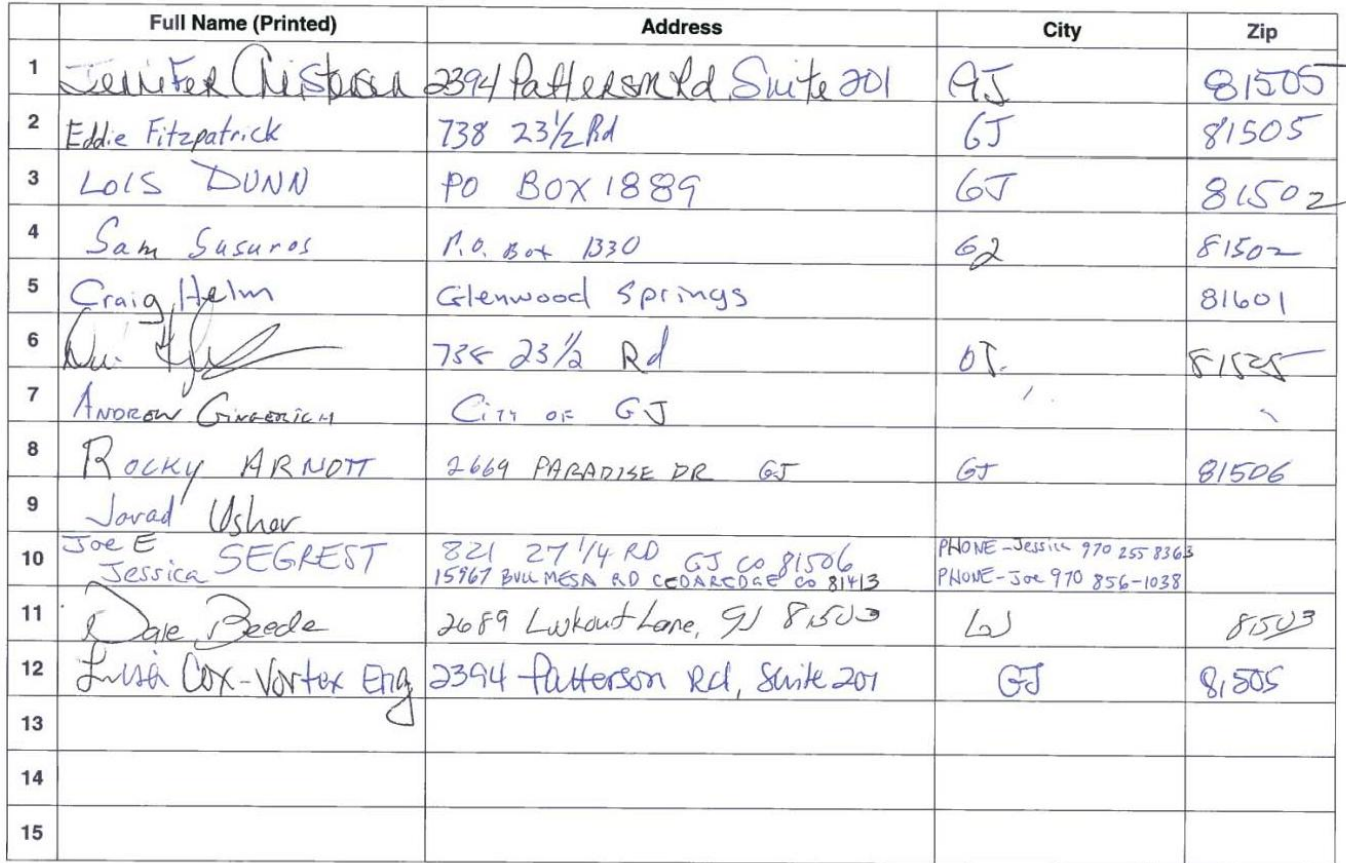 Full Name (Printed) Address City Zip
1 Jennifer Christensen 2394 Patterson Rd Suite 201 GJ 81505
2 Eddie Fitzpatrick 738 23 1/2 Rd GJ 81505
3 LOIS DUNN PO BOX 1889 GJ 81502
4 Sam Susuras P.O. Box 1330 GJ 81502
5 Craig Helm Glenwood Springs 81601
6 738 23 1/2 Rd GJ. 81525
7 ANDREW GINGERICH CITY OF GJ
8 ROCKY ARNOTT 2669 PARADISE DR GJ GJ 81506
9 Usher
10 Joe E Jessica SEGREST 821 27 1/4 RD GJ CO 81506 PHONE-Jessica 970 255 8363
15967 BULL MESA RD CEDAREDGE CO 81413 PHONE-Joe 970 856-1038
11 Beede 2689 Lookout Lane, GJ 81503 GJ 81503
12 Lisa Cox-Vortex Eng 2394 Patterson Rd, Suite 201 GJ 81505
13
14
15